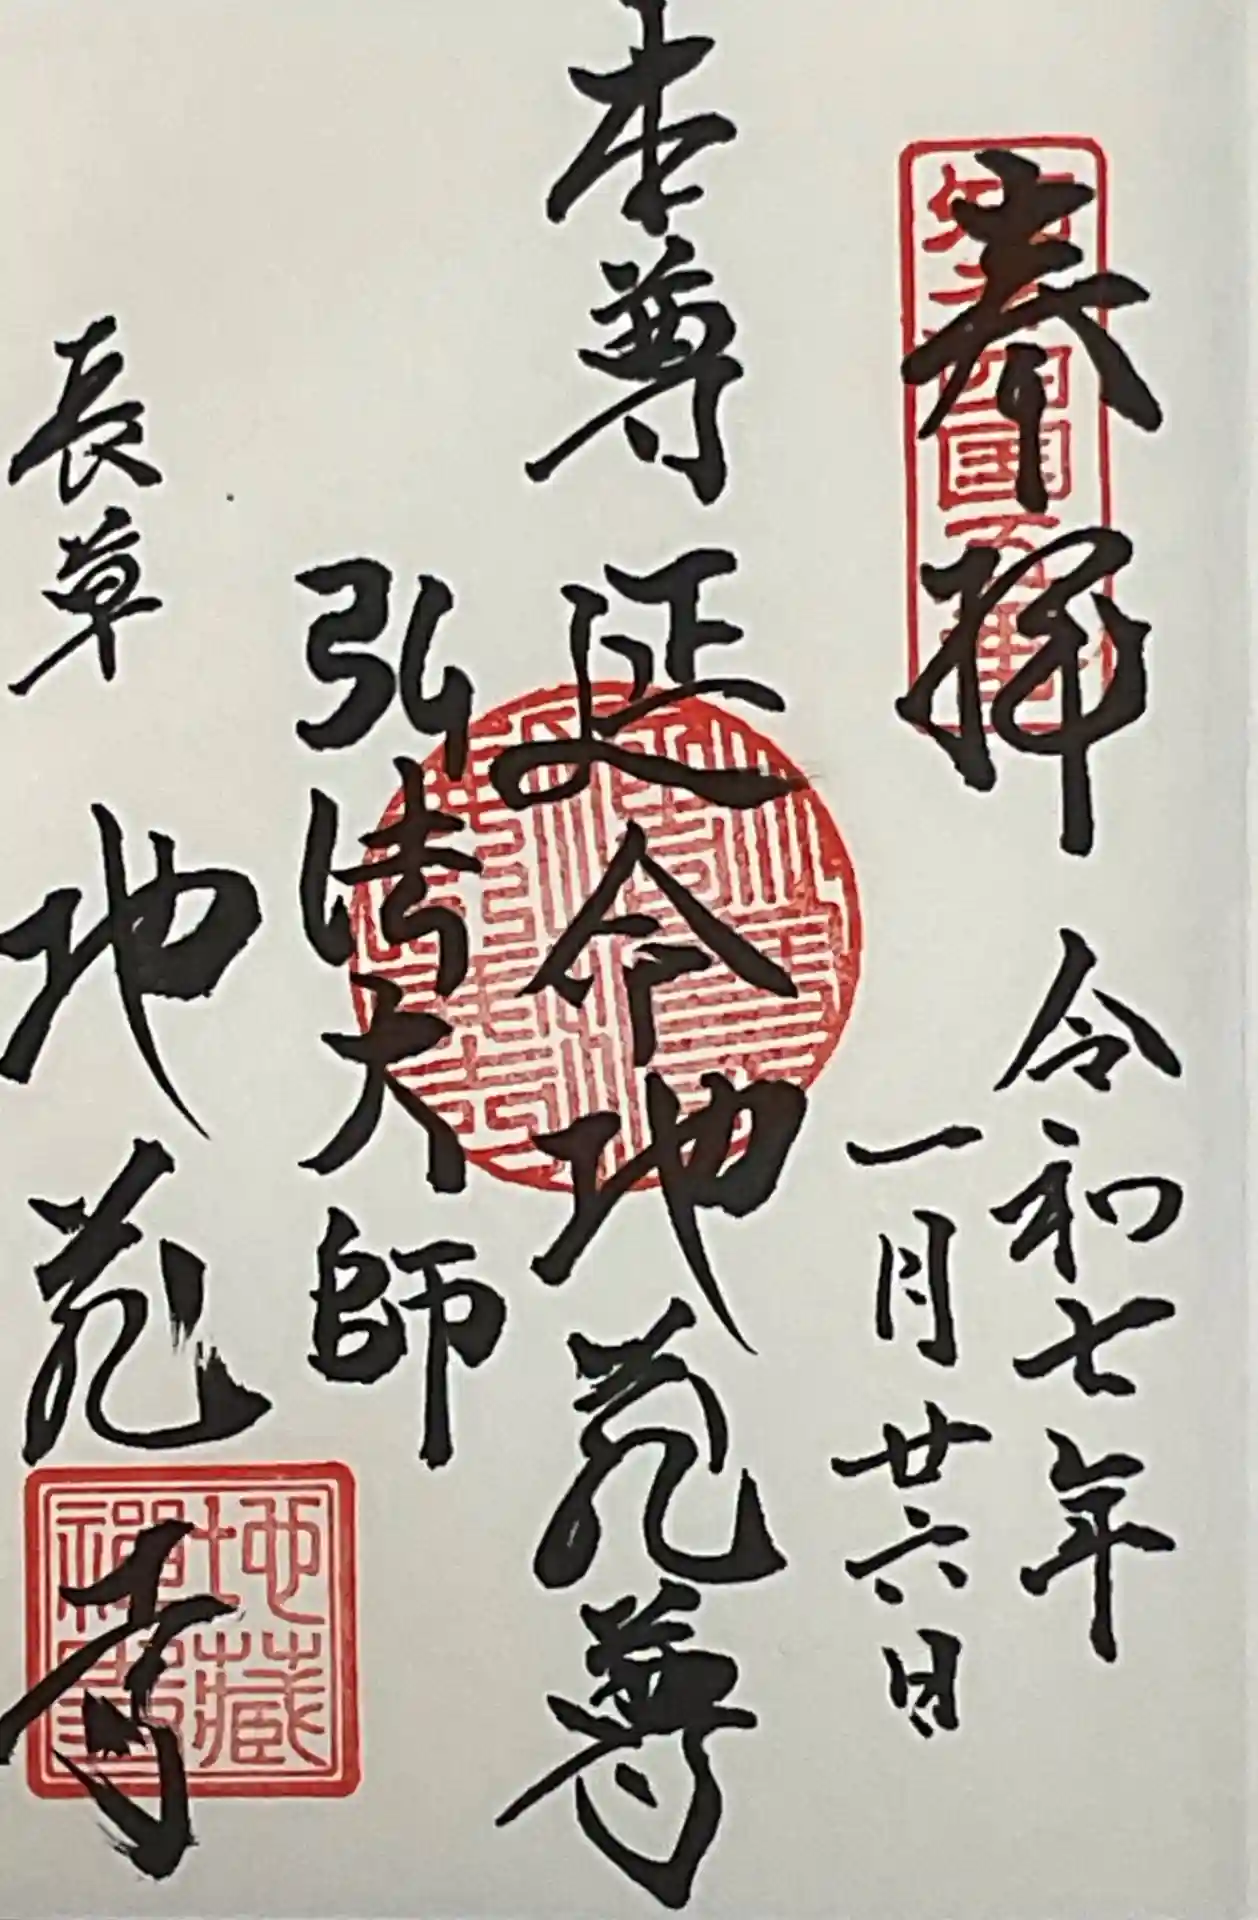 奉拝
令和七年
一月廿六日
本尊延命地蔵尊
弘法大師
長草
地蔵寺
地藏
禪寺